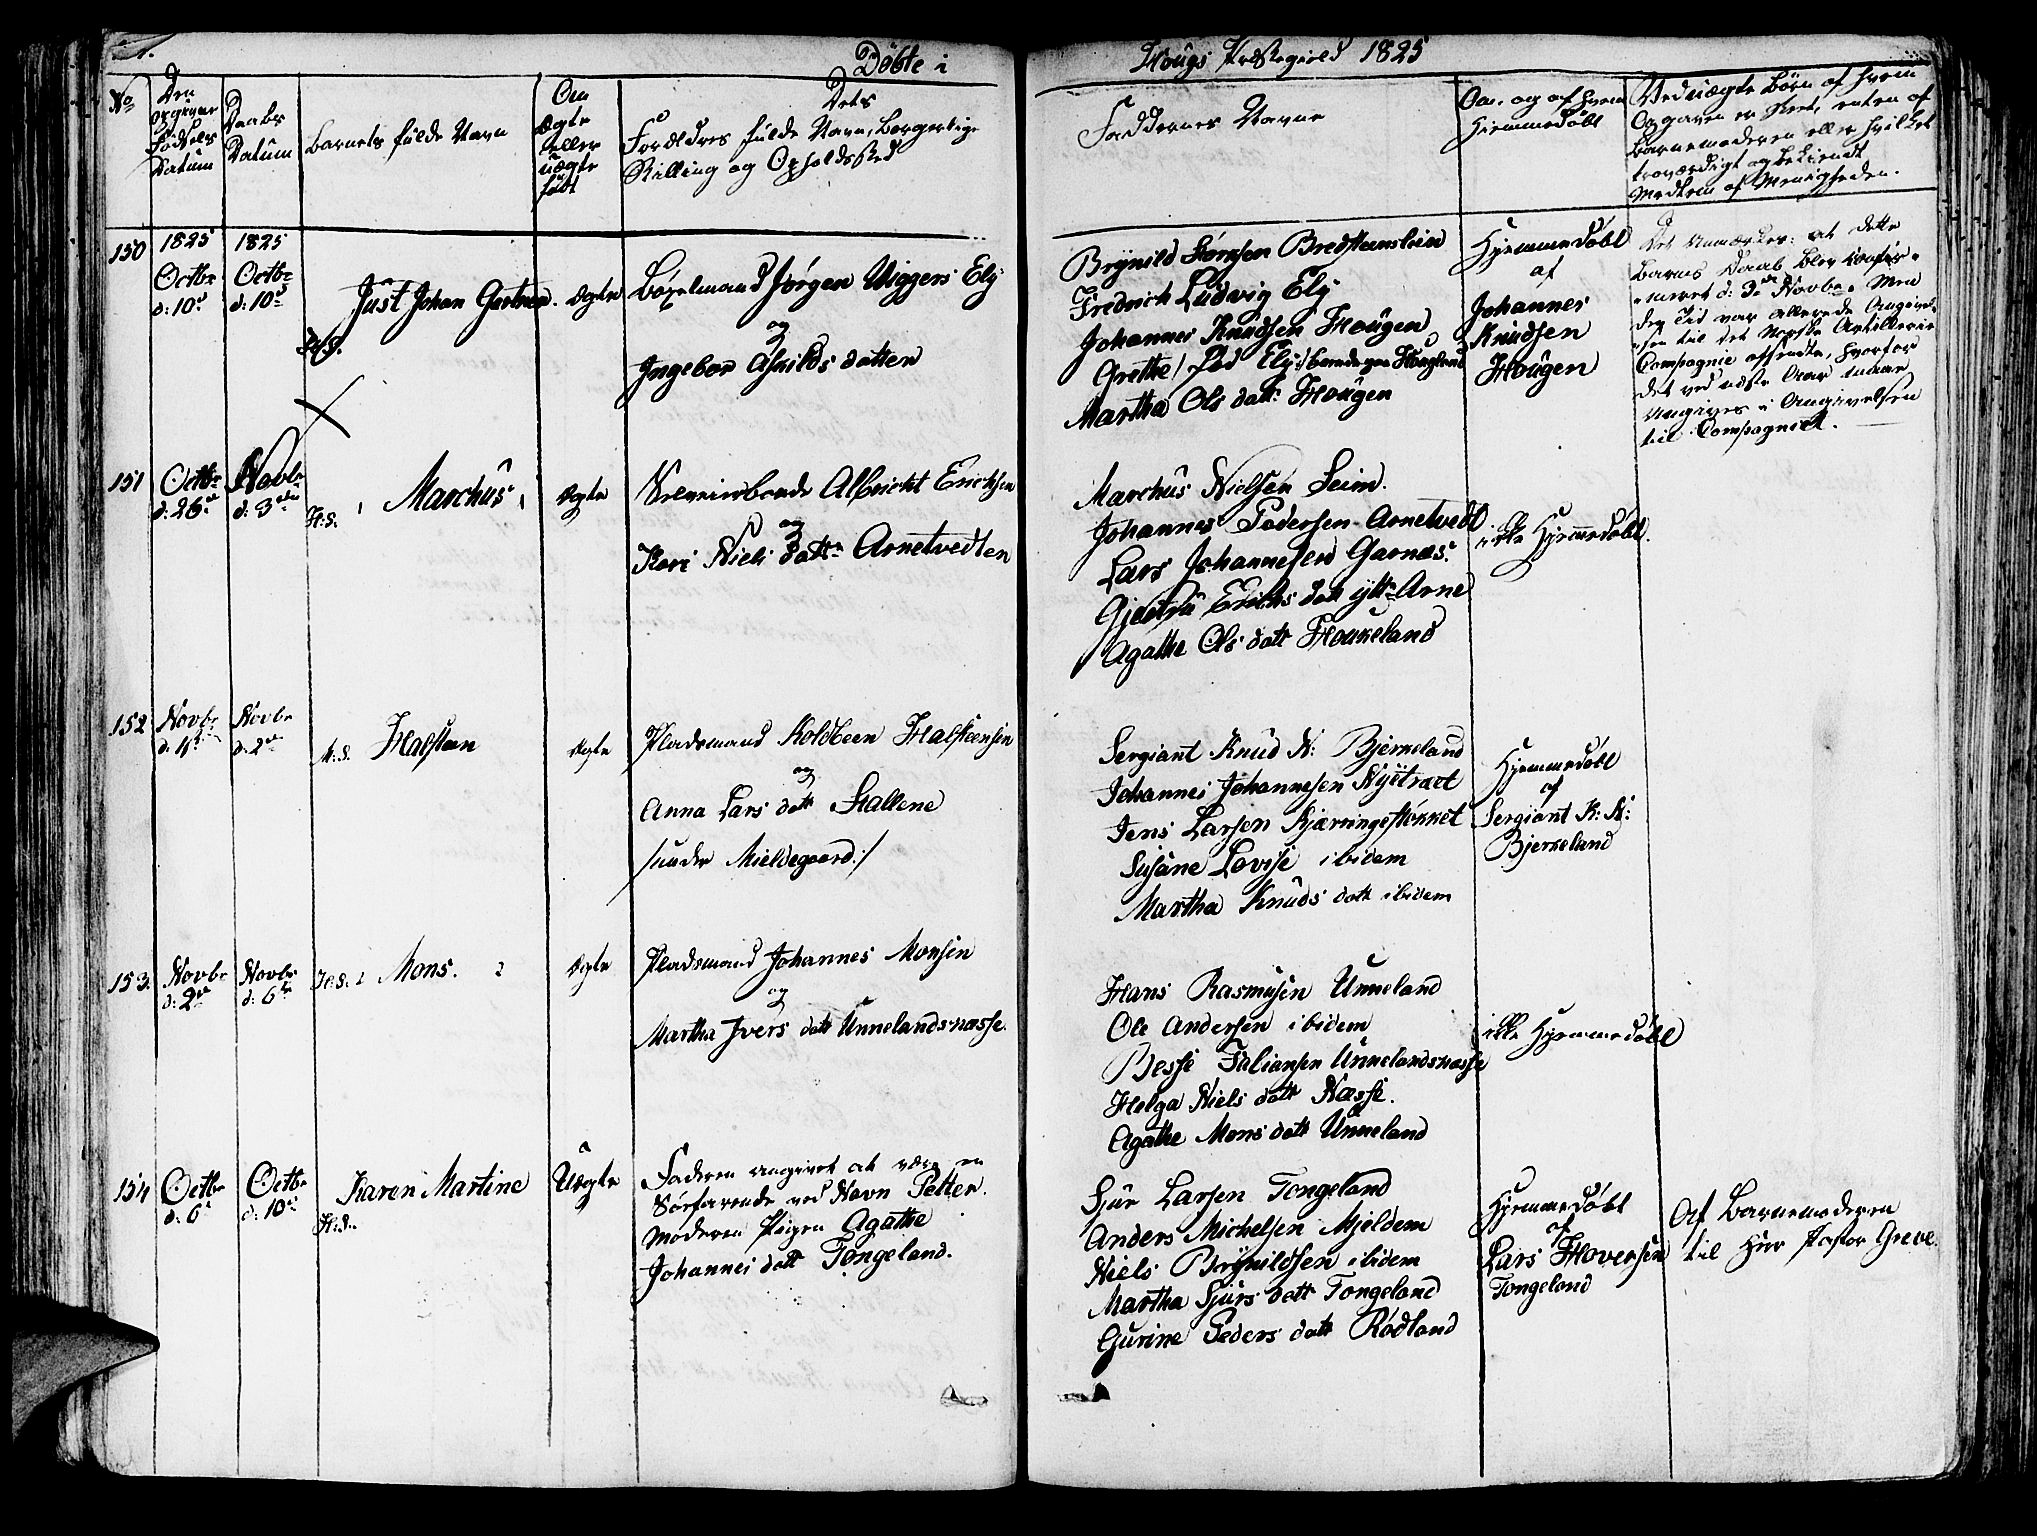 Döbte i Hougs Præstegield 1825
No
Den opgivne Födsels Datum
Daabs Datum
Barnets fulde Navn
Om Ægte eller uægte født
Dets Forældres fulde Navn, Borgerlige Stilling og Opholdssted
Faddernes Navne
Om og af hvem Hiemmedöbt
Ved uægte Börn af hvem Opgaven er skeet, enten af Barnemoderen eller hvilket troværdigt og bekiendt Medlem af Menigheden.
150
1825 Octbr d: 10d
1825 Octbr d: 10d
Just Johan Gartner.
Ægte
Bøxelmand Jörgen Wiggers Ely
og
Ingebor Asxilds datter
Brÿnild Stensen Bredsteenslein
Fredrich Ludvig Ely
Johannes Knudsen Hougen
Grethe / fød Ely:/ boende paa Hougland
Martha Ols datt: Hougen
Hjemmedöbt
af
Johannes
Knudsen
Hougen
Det anmærkes: at dette
Barns Daab blev confir-
meret d: 3die Novbr. Men
den Tid var allerede Angivel-
sen til det Norske Artillerie
Compagnie afsendte, hvorfor
det ved næste Aar maae
angives i Angivelsen
til Compagniet.
151
Octbr d: 26d
Novbr d: 3die
H:d:
Marchus
Ægte
Selveierbonde Albricht Erichsen
og
Kari Niels datt: Arnetvedten
Marchus Nielsen Seim.
Johannes Pedersen Arnetvedt
Lars Johannesen Garnæs.
Gjertru Erichs datt ytt: Arne
Agathe Ols datt Houkeland
ikke Hjemmedöbt.
152
Novbr d: 1st
Novbr d: 2d
H:d:
Halsten
Ægte
Pladsmand Koldbeen Halsteensen
og
Anna Lars datt Hallene
/ under Mieldegaard:/
Sergiant Knud N: Bjerkeland
Johannes Johannesen Nÿtræet
Jens Larsen Kjærringestökket
Susane Lovise ibidem
Martha Knuds datt ibidem
Hjemmedöbt
af
Sergiant K: N:
Bjerkeland
153.
Novbr d: 2d
Novbr d: 6te
H:d:
Mons.
Ægte
Pladsmand Johannes Monsen
og
Martha Ivers datt Unnelandsnæsse.
Hans Rasmusen Unneland
Ole Andersen ibidem
Besse Fabiansen Unnelandsnæsse
Helga Niels datt Næsse.
Agathe Mons datt Unneland
ikke Hjemmedöbt
154
Octbr d: 6te
Octbr d: 10de
H:d:
Karen Martine
Uægte
Faderen angivet at være en
Sörfarende ved Navn Petter.
Moderen Pigen Agathe
Johannes datt Tongeland.
Sjur Larsen Tongeland
Anders Michelsen Mjeldem
Niels Brÿnildsen ibidem
Martha Sjurs datt Tongeland
Gurine Peders datt Rødland
Hjemmedöbt
af
Lars Haversen
Tongeland
Af Barnemoderen
til Herr Pastor Greve.